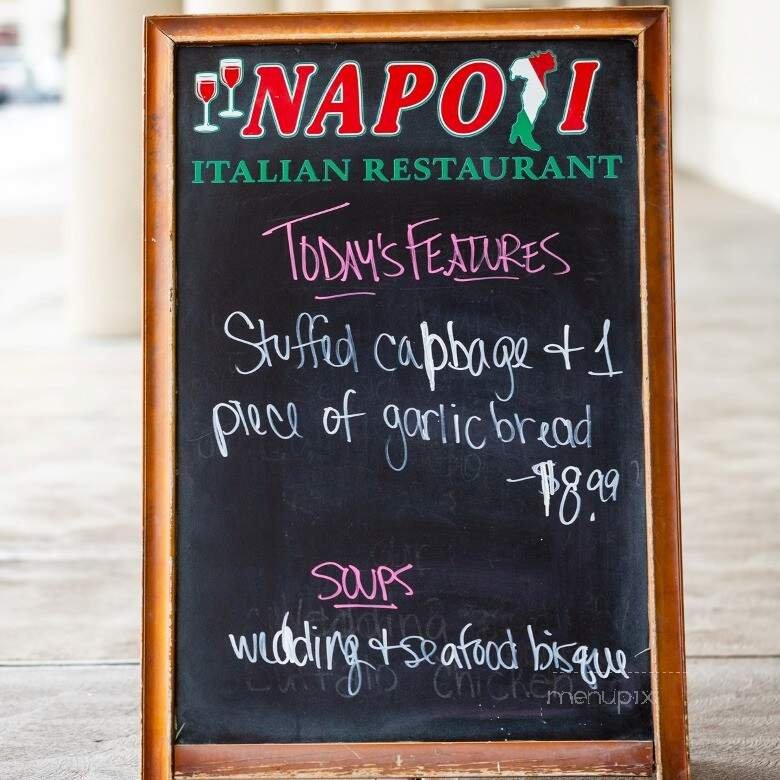 NAPOLI
ITALIAN RESTAURANT
TODAY'S FEATURES
Stuffed cabbage + 1
piece of garlic bread
-$8.99
SOUPS
wedding + seafood bisque
chicken
menupix